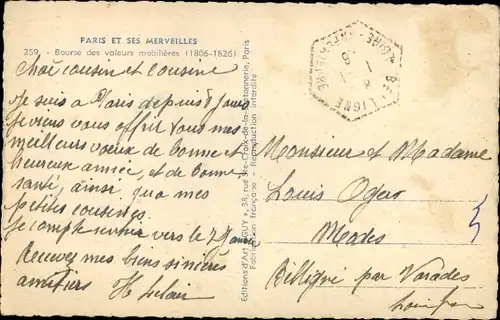 PARIS ET SES MERVEILLES
259. - Bourse des valeurs mobilières (1806-1826)
cousin et cousine
Je suis à Paris depuis 8 jours
Je viens vous offrir tous mes
meilleurs vœux de bonne et
heureuse année, et de bonne
santé, ainsi que mes
petites cousines.
Je compte rentrer vers le
Recevez mes biens sincères
amitiers H
Editions d'Art "GUY", 38, rue Ste-Croix-de-la-Bretonnerie, Paris
Fabrication française - Reproduction interdite
BELLIGNE
LOIRE-INFERIEURE
Monsieur et Madame
Louis Oger
Belligné par Varades